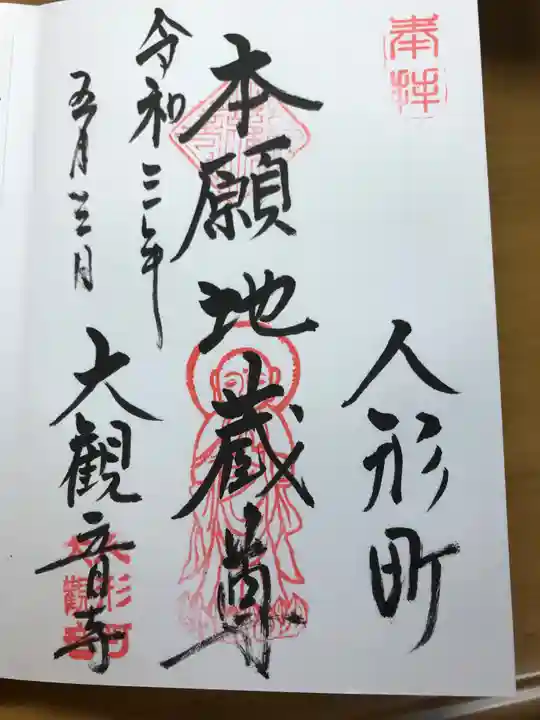 奉拝
人形町
本願地蔵尊
令和三年
五月廿二日
大観音寺